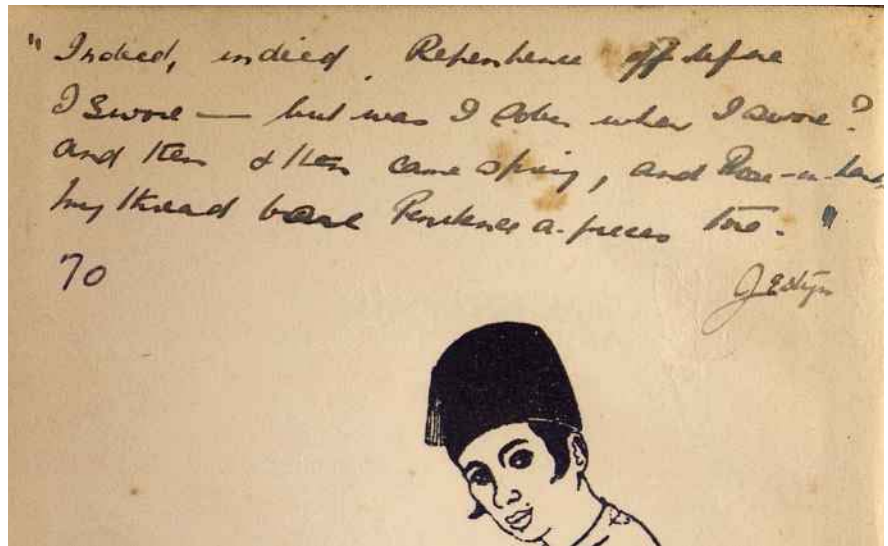 "Indeed, indeed, Repentance oft before
I swore — but was I sober when I swore?
And then & then came spring, and Rose-in-hand
My thread bare Penitence a-pieces tore."
70
JEstyn